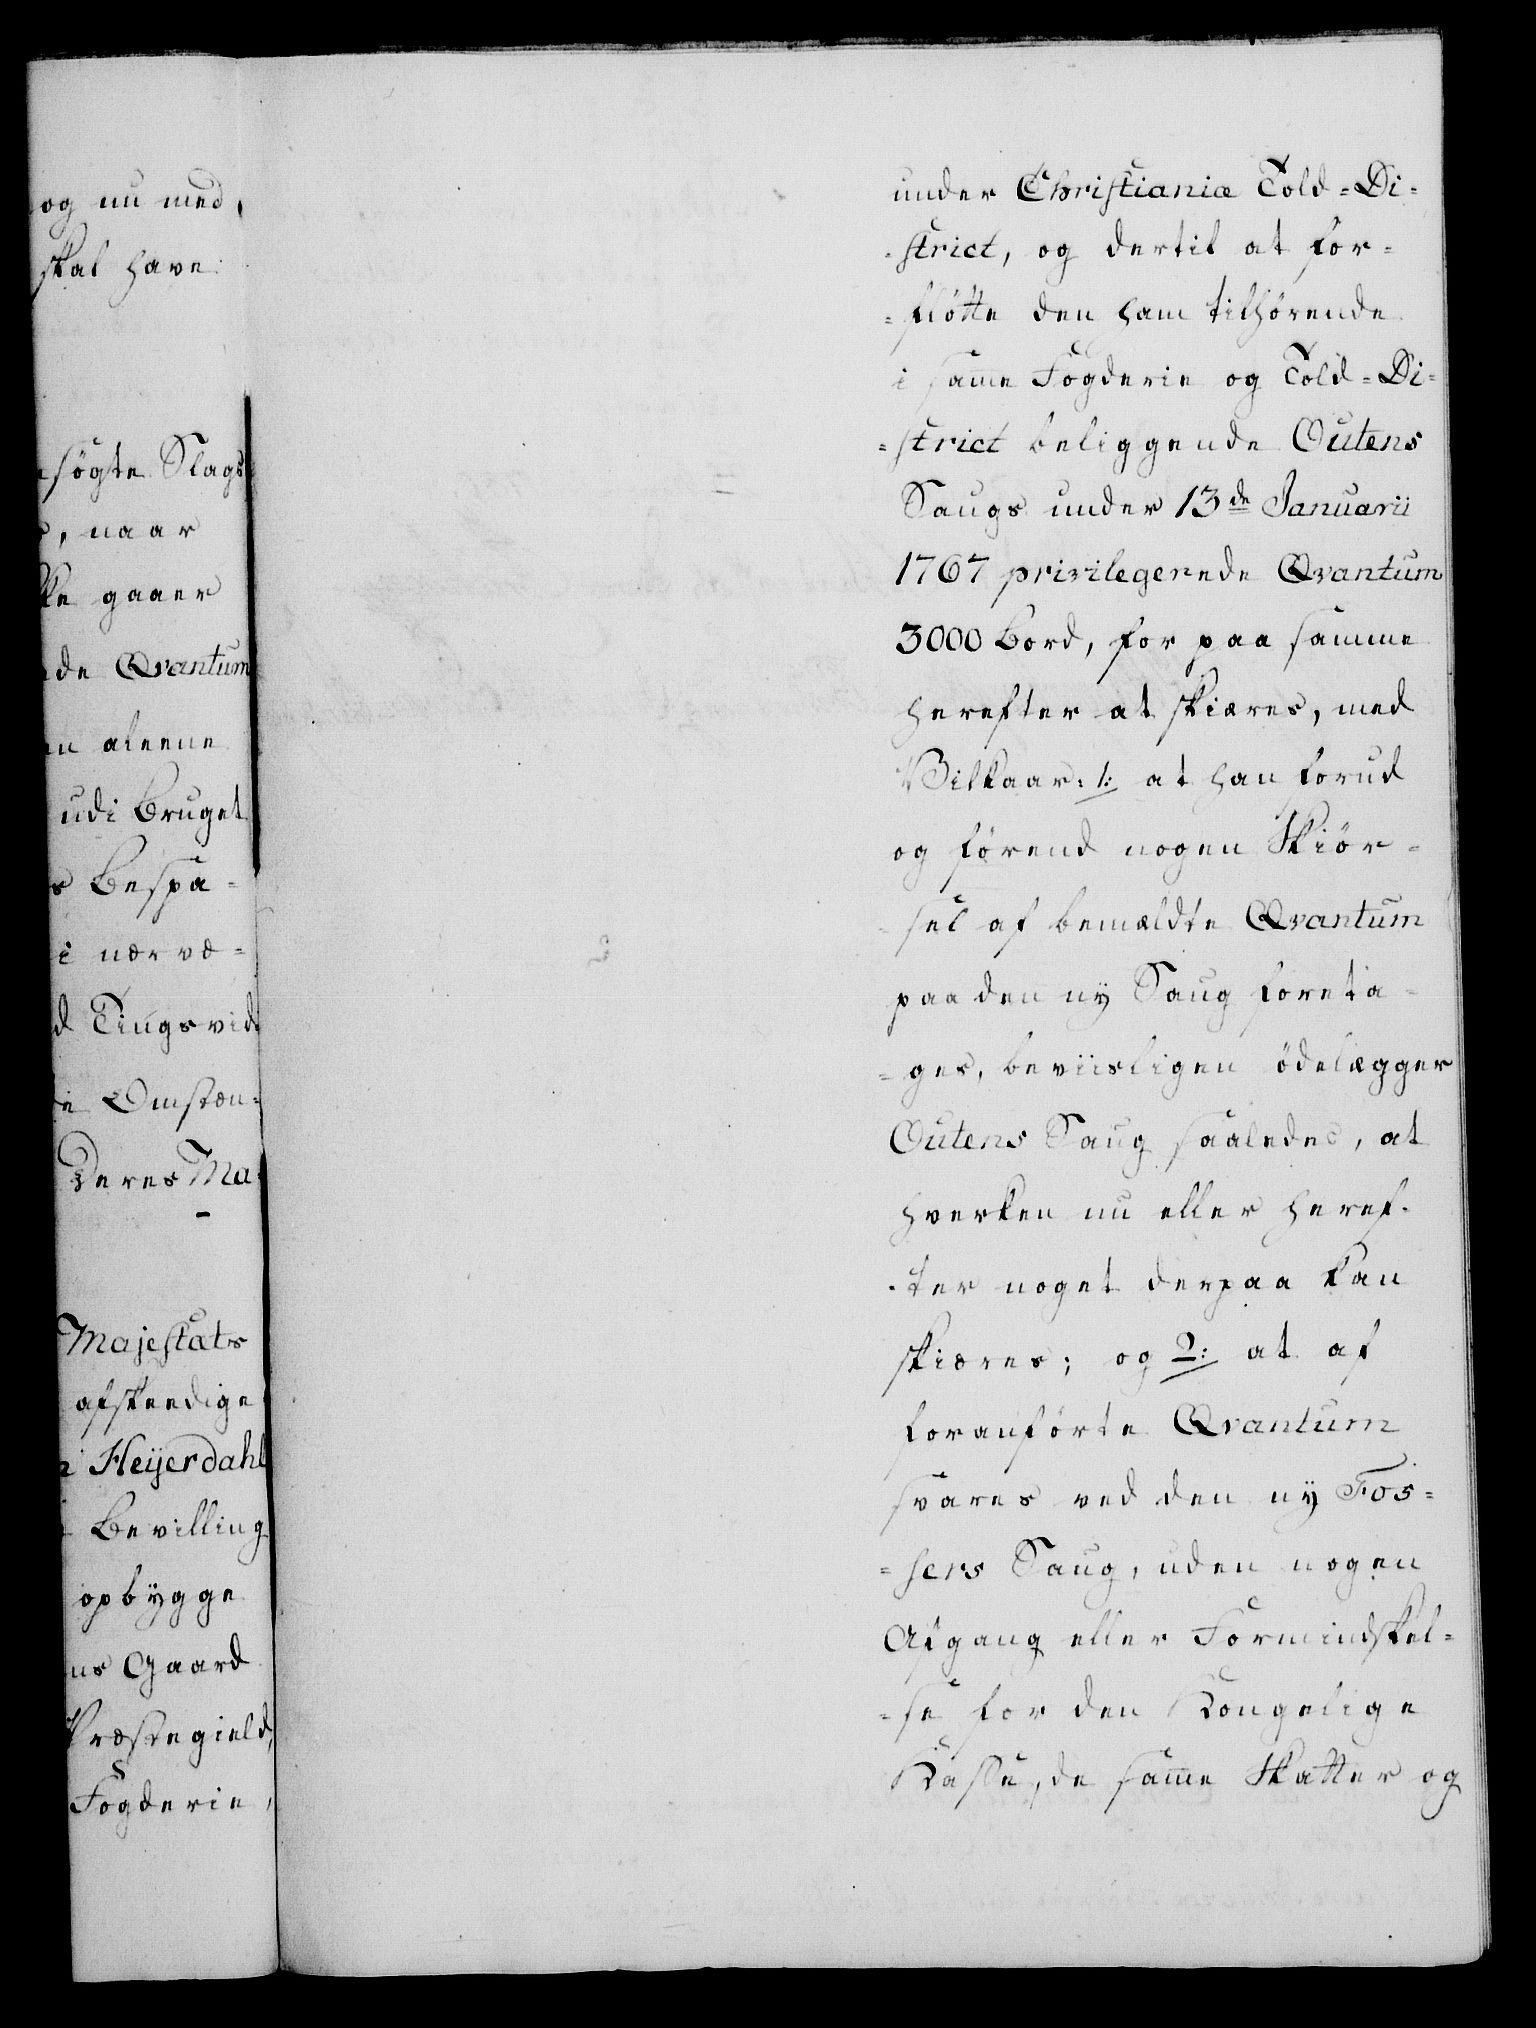 og nu med,
skal have
søgte Slags
, naar
ke gaaer
de Qvantum
en aleene
udi Bruget
s Bespa-
i nærvæ-
d Tingsvid
de Omstæn-
Deres Ma-
Majestæts
afskeedige
Heijerdahl
Bevilling
opbÿgge
ns Gaard
Præstegield,
Fogderie,
under Christianiæ Told-Di-
-strict, og dertil at for-
-fløtte den ham tilhørende
i samme Fogderie og Told-Di-
-strict beliggende Outens
Saugs under 13de Januarii
1767 privilegerede Qvantum
3000 Bord, for paa samme
herefter at skiæres, med
Vilkaar: 1: at han forud
og førend nogen Skiør-
sel af bemældte Qvantum
paa den nÿ Saug foreta-
-ges, beviisligen ödelægger
Outens Saug saaledes, at
hverken nu eller heref-
-ter noget derpaa kan
skiæres; og 2: at af
foranførte Qvantum
svares ved den nÿ Fos-
-sers Saug, uden nogen
Afgang eller Formindskel-
-se for den Kongelige
Kasse, de samme Skatter og